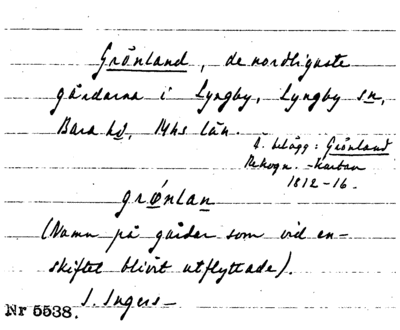 Grönland, de nordligaste
gårdarna i Lyngby, Lyngby sn,
Bara hd, Mhs län.
Ä. belägg: Grönland
Rekogn.-kartan
1812-16.
grǿnlan
(Namn på gårdar som vid en-
skiftet blivit utflyttade).
I. Ingers-
Nr 5538.